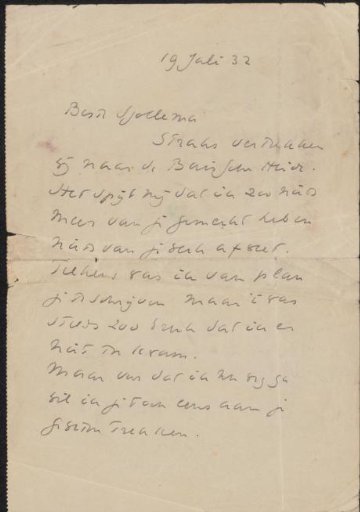 19 Juli 32
Best Sjollema
Straks vertrekken
wij naar de Heide.
Het spijt mij dat ik zoo niks
meer van je gemerkt heb
niks van je
Telkens was ik van plan
je te schrijven maar 't was
steeds zoo druk dat ik er
niet toe kwam.
Maar voor dat ik weg ga
wil ik je toch eens aan je